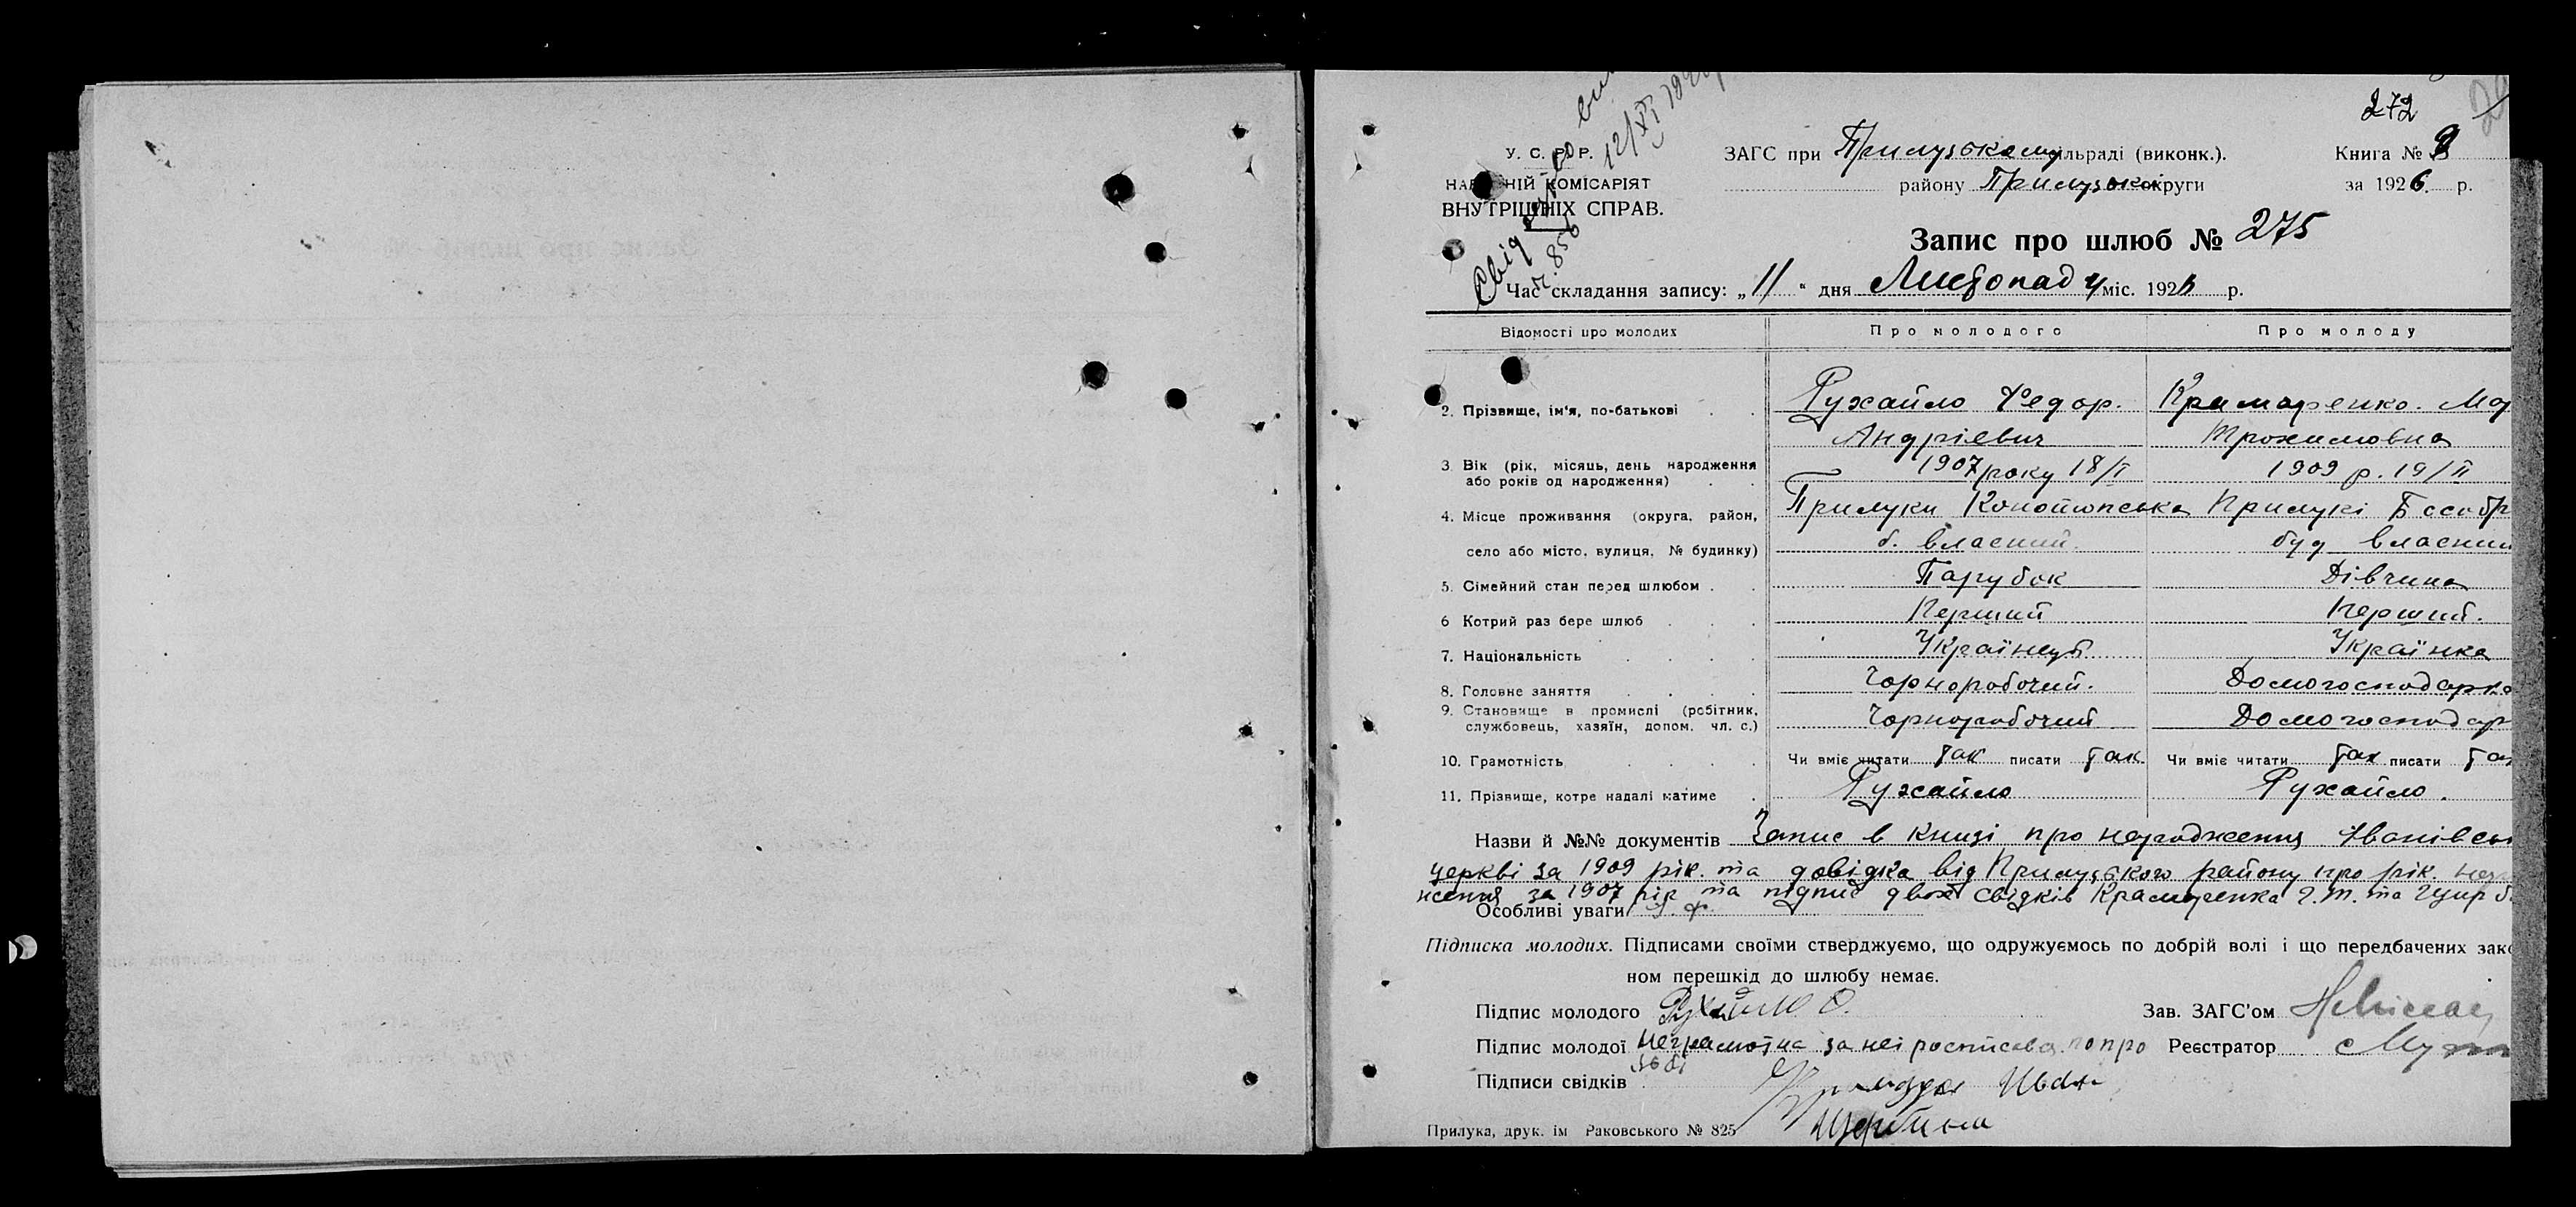 272
У. С. Р. Р.
ЗАГС при Прилузькому сільраді (виконк.).
Книга №
НАРОДНІЙ КОМІСАРІЯТ
району Прилузької округи
за 1926 р.
ВНУТРІШНІХ СПРАВ.
Свід
12/XI
ч. 850
Запис про шлюб № 275
Час складання запису: „11“ дня Листопаду міс. 1926 р.
Відомості про молодих
Про молодого
Про молоду
2. Прізвище, ім'я, по-батькові . . Рухайло Федор. Крамаренко. Мар
Андріевич Трохимовна
3. Вік (рік, місяць, день народження 1907 року 18/I 1909 р. 19/II
або років од народження) . .
4. Місце проживання (округа, район, Прилуки Конотопська Прилукі
село або місто, вулиця, № будинку) б. власний. буд власний
5. Сімейний стан перед шлюбом . . Парубок Дівчина
6 Котрий раз бере шлюб . . . Перший Першит.
7. Національність . . . . Українець Українка
8. Головне заняття . . . . Чорноробочий. Домогосподарка
9. Становище в промислі (робітник, Чорноробочий Домогосподар
службовець, хазяїн, допом. чл. с.)
10. Грамотність . . . . Чи вміє читати так писати так. Чи вміє читати так писати так
11. Прізвище, котре надалі матиме . Рухайло Рухайло.
Назви й №№ документів Запис в книзі про народження Іванівсь
церкві за 1909 рік. та довідка від Прилуського району про рік. наро
ження за 1907 рік та підпис двох свідків Крамаренка Г. Т. та
Особливі уваги
Підписка молодих. Підписами своїми стверджуємо, що одружуємось по добрій волі і що передбачених зако
ном перешкід до шлюбу немає.
Підпис молодого Рухайло Ф.
Зав. ЗАГС'ом
Підпис молодої Неграмотна за неі
Реєстратор
Підписи свідків Іван
Щербина
Прилука, друк. ім Раковського № 825